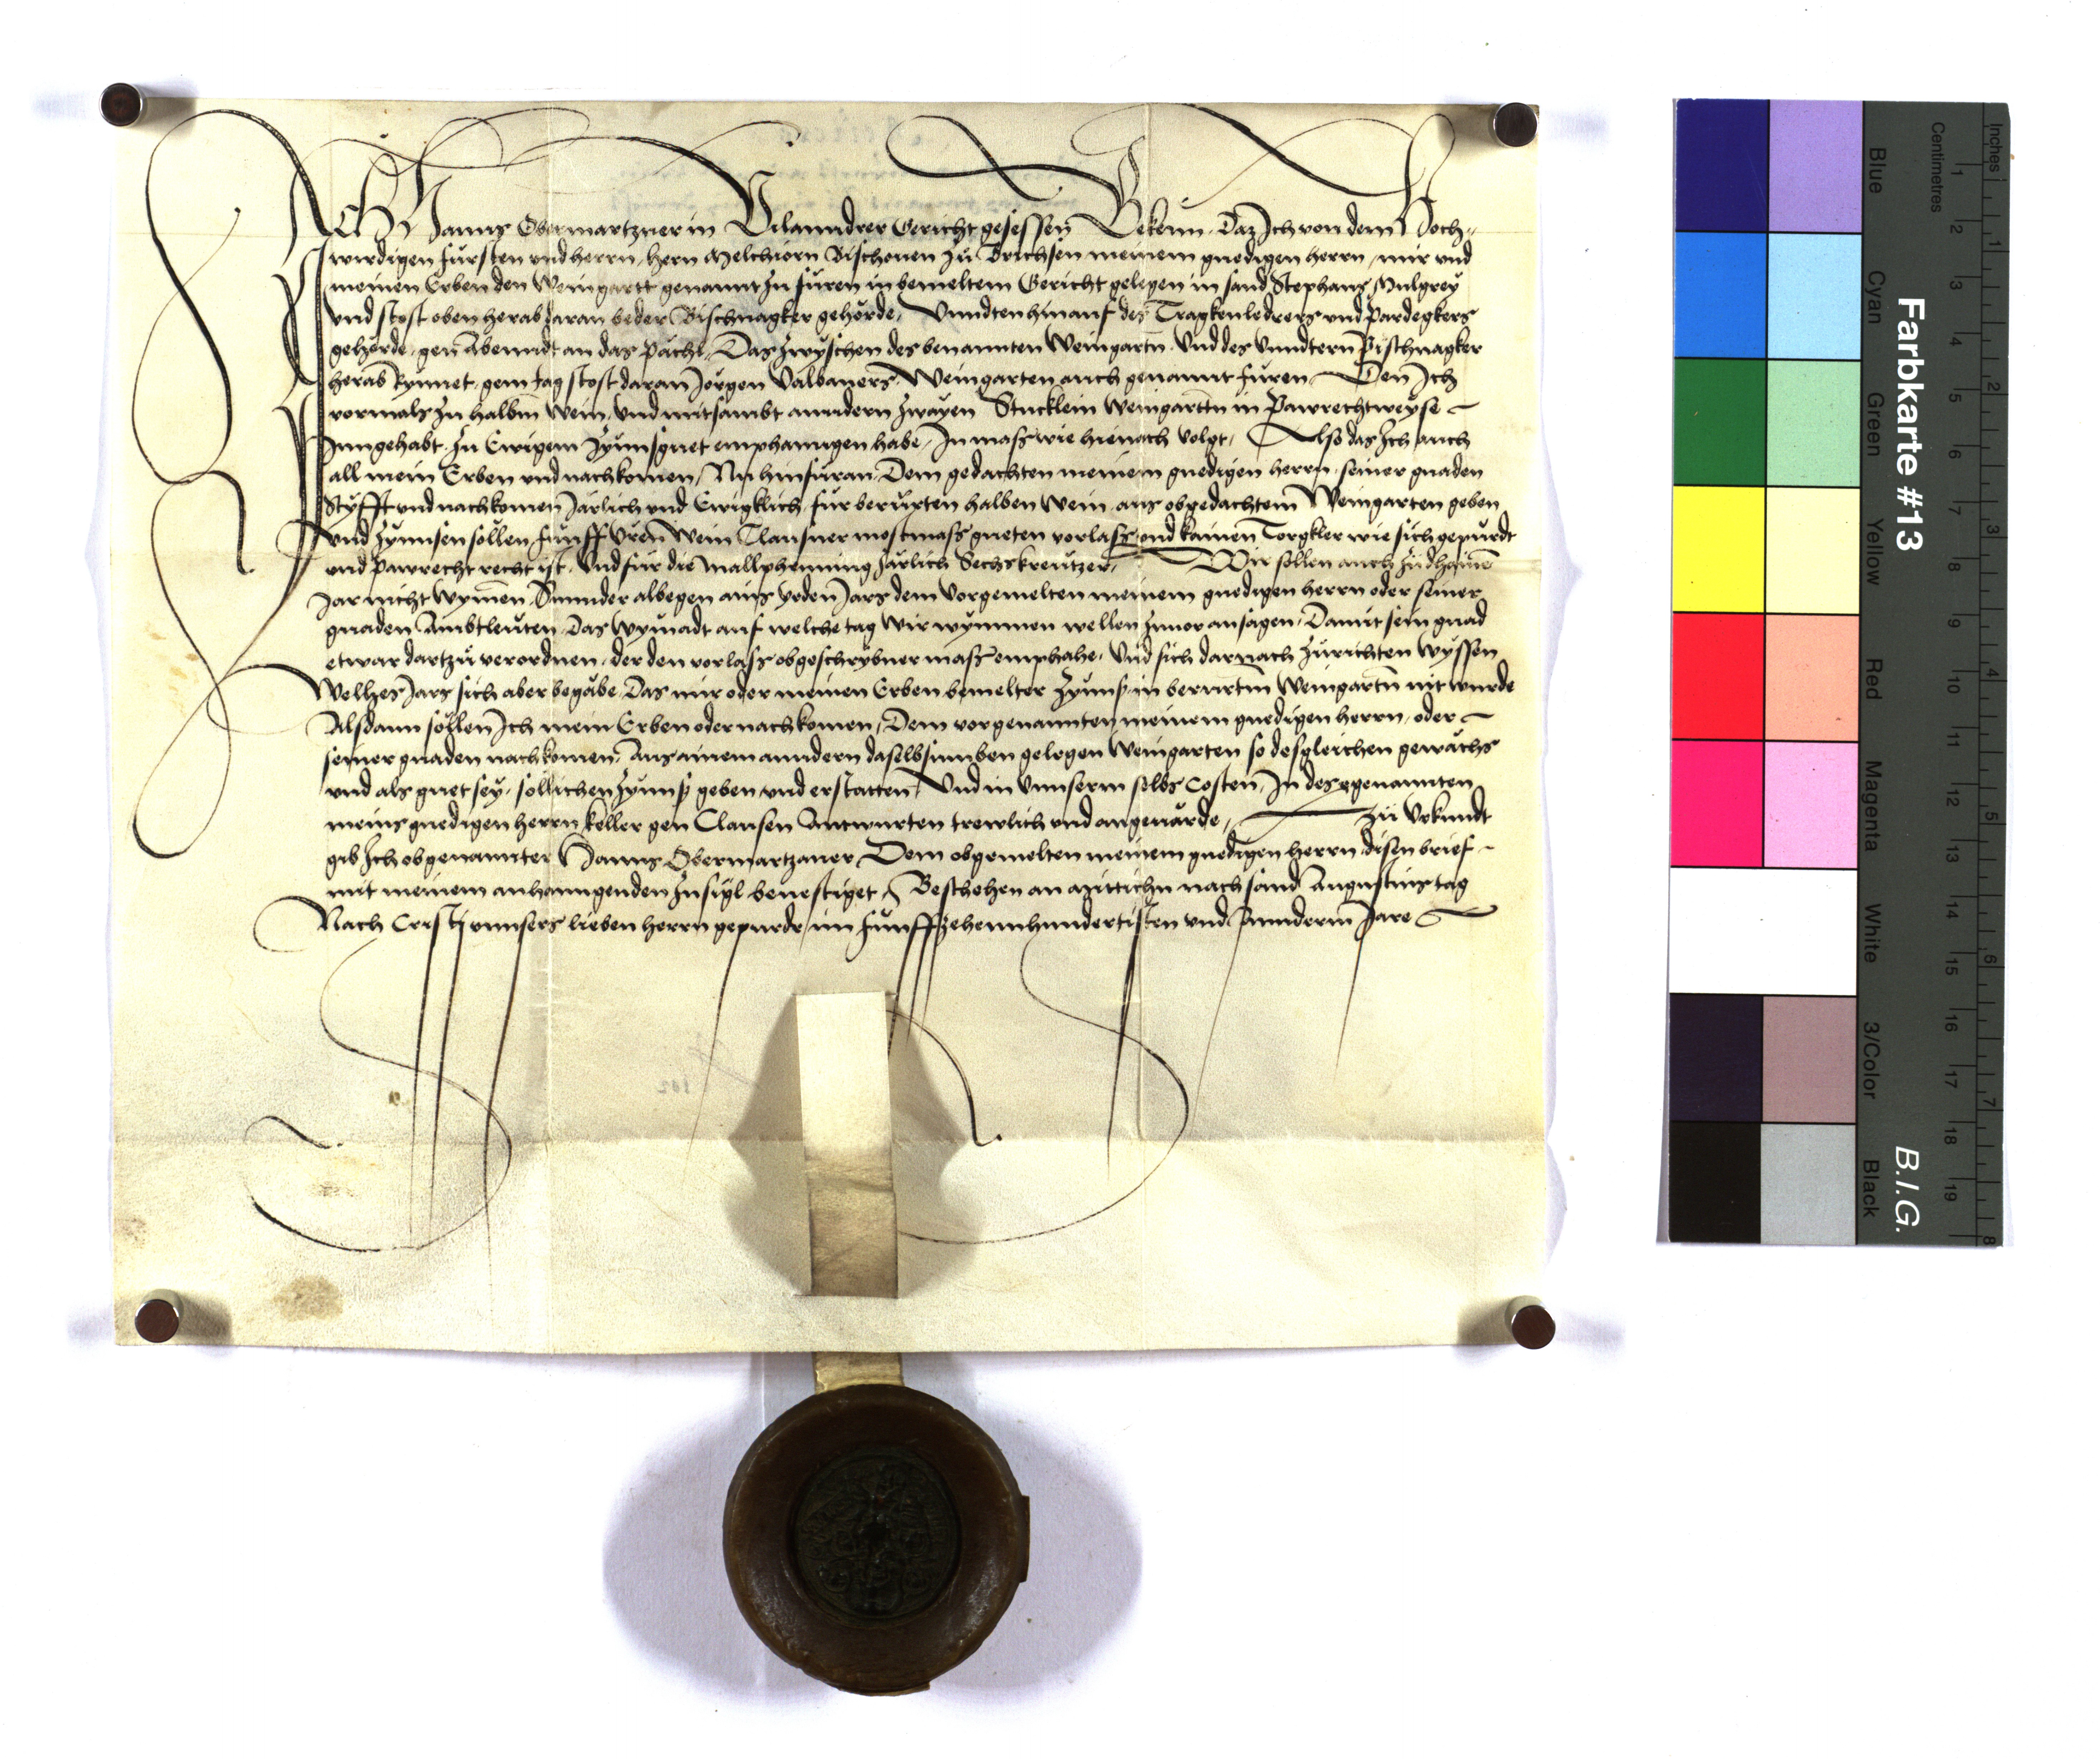 Ich Hanns Obermartzner in Vilanndrer Gericht gesessen Bekenn. Daz Ich von dem Hoch=
wirdigen fürsten vnd herrn, hern Melchiorn Bischouen zü Brichsen meinem gnedigen herrn, mir vnd
meinen Erben den Weingartt genannt zu füren in bemeltem Gericht gelegen in sand Stephans Mulgrey
vnd stost oben herab daran beder Pischnagker gehörde, Vnndten hinauf des Tragkenledrers vnd Pardegkers
gehörde, gen Abenndt an das Pächl, Das zwyschen des benannten Weingartn vnd des Vnndtern Pischnagker
herab Rynnet, gem tag stost daran Jörgen Valbaners Weingarten auch genannt füren, Den Ich
vormals zu halbm wein, vnd mitsambt anndern zwayen Stucklein weingarttn in Pawrechtweyse
Inngehabt, zu Ewigem Zynnsguet emphanngen habe, In mass wie hienach volgt, Also das Ich auch
all mein Erben vnd nachkomen, Nu hinfüran, Dem gedachten meinem gnedigen herrn, seiner gnaden
Styfft vnd nachkomen Järlich vnd Ewigklich, für berürten halben Wein, aus obgedachtem Weingarten geben
vnd Zynnsen söllen fünff Vren Wein Clausner mostmass gueten vorlass vnd kainen Torgkler wie sich gepürdt
vnd Pawrecht recht ist, Vnd für die mallphenning Järlich Sechs kreutzer, Wir söllen auch zu dhainem
Jar nicht Wymen, Sunnder albegen ains yeden Jars dem Vorgemelten meinem gnedigen herrn oder seiner
gnaden Ambtleuten, Das Wymadt auf welche tag Wir wymmen wellen Zuuor ansagen, Damit sein gnad
etwar dartzü verordnen, der den vorlass obgeschrybner mass emphahe, Vnd sich darnach zürichten Wyssen
Welhes Jars sich aber begäbe, Das mir oder meinen Erben bemelter Zynns, in berürtm Weingartn nit wurde
Alsdann söllen Ich mein Erben oder nachkomen, Dem vorgenannten meinem gnedigen herrn, oder
seiner gnaden nachkomen, Aus ainem anndern daselbs vmben gelegen Weingarten so desgleichen gewächs
vnd als guet sey, söllichen Zynns geben vnd erstatten, Vnd in Vnnserm selbs Costen, In des egenannten
meins gnedigen herrn keller gen Clausen Antwurten trewlich vnd angeuärde, Zü Vrkundt
gib Ich obgenannter Hanns Obermartzaner, Dem obgemelten meinem gnedigen herrn disen brief
mit meinem anhanngenden Insigl beuestiget, Beschehen an Mittichn nach sand Augustins tag
Nach Cristj vnnsers lieben herrn gepurde, im fünffzehennhundertisten vnd Annderm Jare
Farbkarte #13
B.I.G.
Centimetres
Inches
Blue
Cyan
Green
Yellow
Red
Magenta
White
3/Color
Black
1 2 3 4 5 6 7 8 9 10 11 12 13 14 15 16 17 18 19
1 2 3 4 5 6 7 8